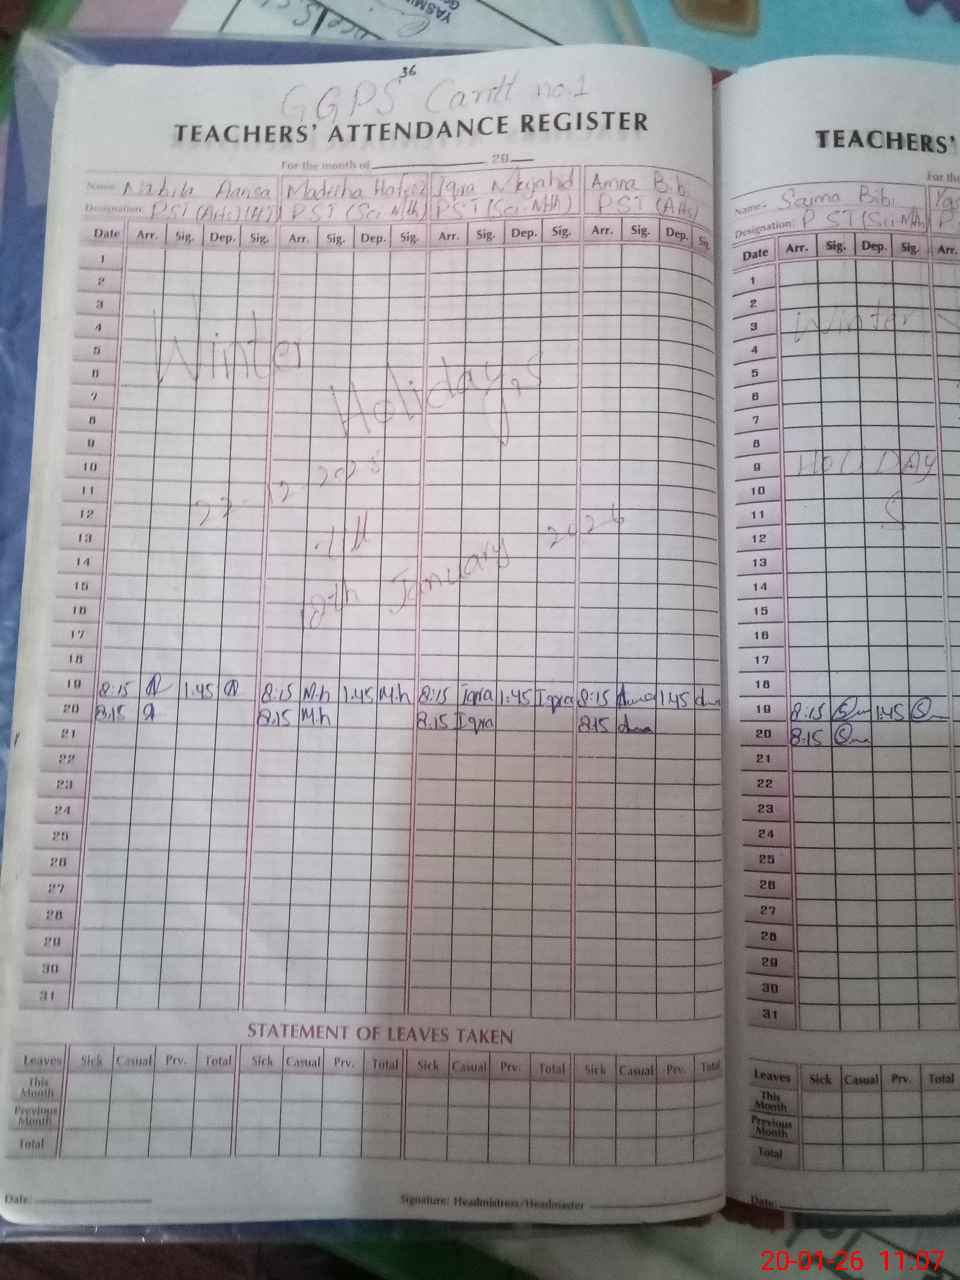 YASMI
36
GGPS Cantt no.1
TEACHERS' ATTENDANCE REGISTER
For the month of 20
Name: Nabila Aansa Madeeha Hafeez Iqra Mujahid Amna Bibi
Designation: PST (Arts) PST (Sci-Mth) PST (Sci-Mth) PST (Arts)
Date Arr. Sig. Dep. Sig. Arr. Sig. Dep. Sig. Arr. Sig. Dep. Sig. Arr. Sig. Dep. Sig.
1
2
3
4
5
6
7
8
9
10
11
12
13
14
15
16
17
18
Winter
Holidays
22-12-2025
till
18th January 2026
19 8:15 1:45 8:15 M.h 1:45 M.h 8:15 Iqra 1:45 Iqra 8:15 1:45
20 8:15 8:15 M.h 8:15 Iqra 8:15
21
22
23
24
25
26
27
28
29
30
31
STATEMENT OF LEAVES TAKEN
Leaves Sick Casual Prv. Total Sick Casual Prv. Total Sick Casual Prv. Total Sick Casual Prv. Total
This Month
Previous Month
Total
Date: Signature: Headmistress/Headmaster
TEACHERS'
For the
Name: Saima Bibi Yas
Designation: PST (Sci-Mth) P
Date Arr. Sig. Dep. Sig. Arr.
1
2
3
4
5
6
7
8
9
10
11
12
13
14
15
16
17
18
Winter
HOLIDAY
S
19 8:15 1:45
20 8:15
21
22
23
24
25
26
27
28
29
30
31
Leaves Sick Casual Prv. Total
This Month
Previous Month
Total
Date:
20-01-26 11:07